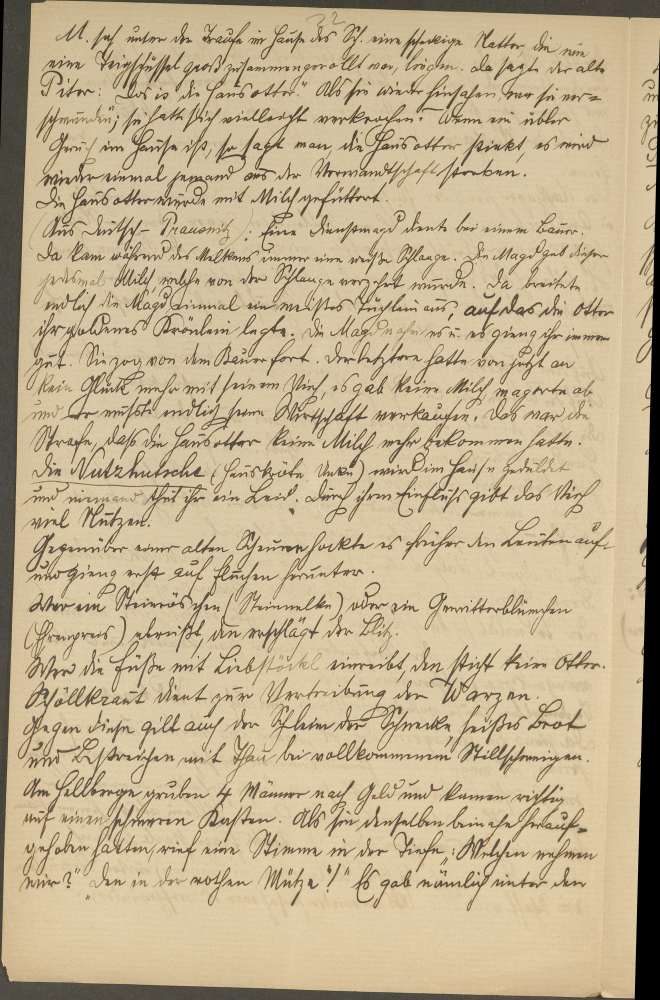 M. sah unter der Traufe im Hause des Sch. eine scheckige Natter, die wie
eine Teigschüssel groß zusammengerollt war, liegen. Da sagte der alte
Piter: Dos is die Hausotter." Als sie wieder hinsahen, war sie ver-
schwunden; sie hatte sich vielleicht verkrochen. Wenn ein übler
Geruch im Hause ist, so sagt man, die Hausotter stinkt, es wird
wieder einmal jemand aus der Verwandtschaft sterben.
Die Hausotter wurde mit Milch gefüttert.
(Aus Deutsch-Prausnitz): Eine Dienstmagd diente bei einem Bauer.
Da kam während des Melkens immer eine weiße Schlange. Die Magd gab dieser
jedesmal Milch welche von der Schlange verzehrt wurde. Da breitete
endlich die Magd einmal ein weißes Tüchlein aus, auf das die Otter
ihr goldenes Krönlein legte. Die Magd nahm es u. es gieng ihr immer
gut. Sie zog von dem Bauer fort. Der letztere hatte von jetzt an
kein Glück mehr mit seinem Vieh, es gab keine Milch, magerte ab
und er mußte endlich seine Wirtschaft verkaufen. Das war die
Strafe, dass die Hausotter keine Milch mehr bekommen hatte.
Die Nutzhutsche (Hauskröte, Unke) wird im Hause geduldet
und niemand thut ihr ein Leid. Durch ihren Einfluß gibt das Vieh
viel Nutzen.
Gegenüber einer alten Scheuer hockte es früher den Leuten auf
und gieng erst auf Fluchen herunter.
Wer ein Steinröschen (Steinnelke) oder ein Gewitterblümchen
(Ehrenpreis) abreißt, den erschlägt der Blitz.
Wer die Füße mit Liebstöckl einreibt, den sticht keine Otter.
Schöllkraut dient zur Vertreibung der Warzen.
Gegen diese gilt auch der Schleim der Schnecke, heißes Brot
und Bestreichen mit Thau bei vollkommenem Stillschweigen.
Am Hellberge gruben 4 Männer nach Geld und kamen richtig
auf einen schweren Kasten. Als sie denselben beinahe herauf-
gehoben hatten, rief eine Stimme in der Tiefe: „Welchen nehmen
wir?" „Den in der rothen Mütze"!" Es gab nämlich unter den